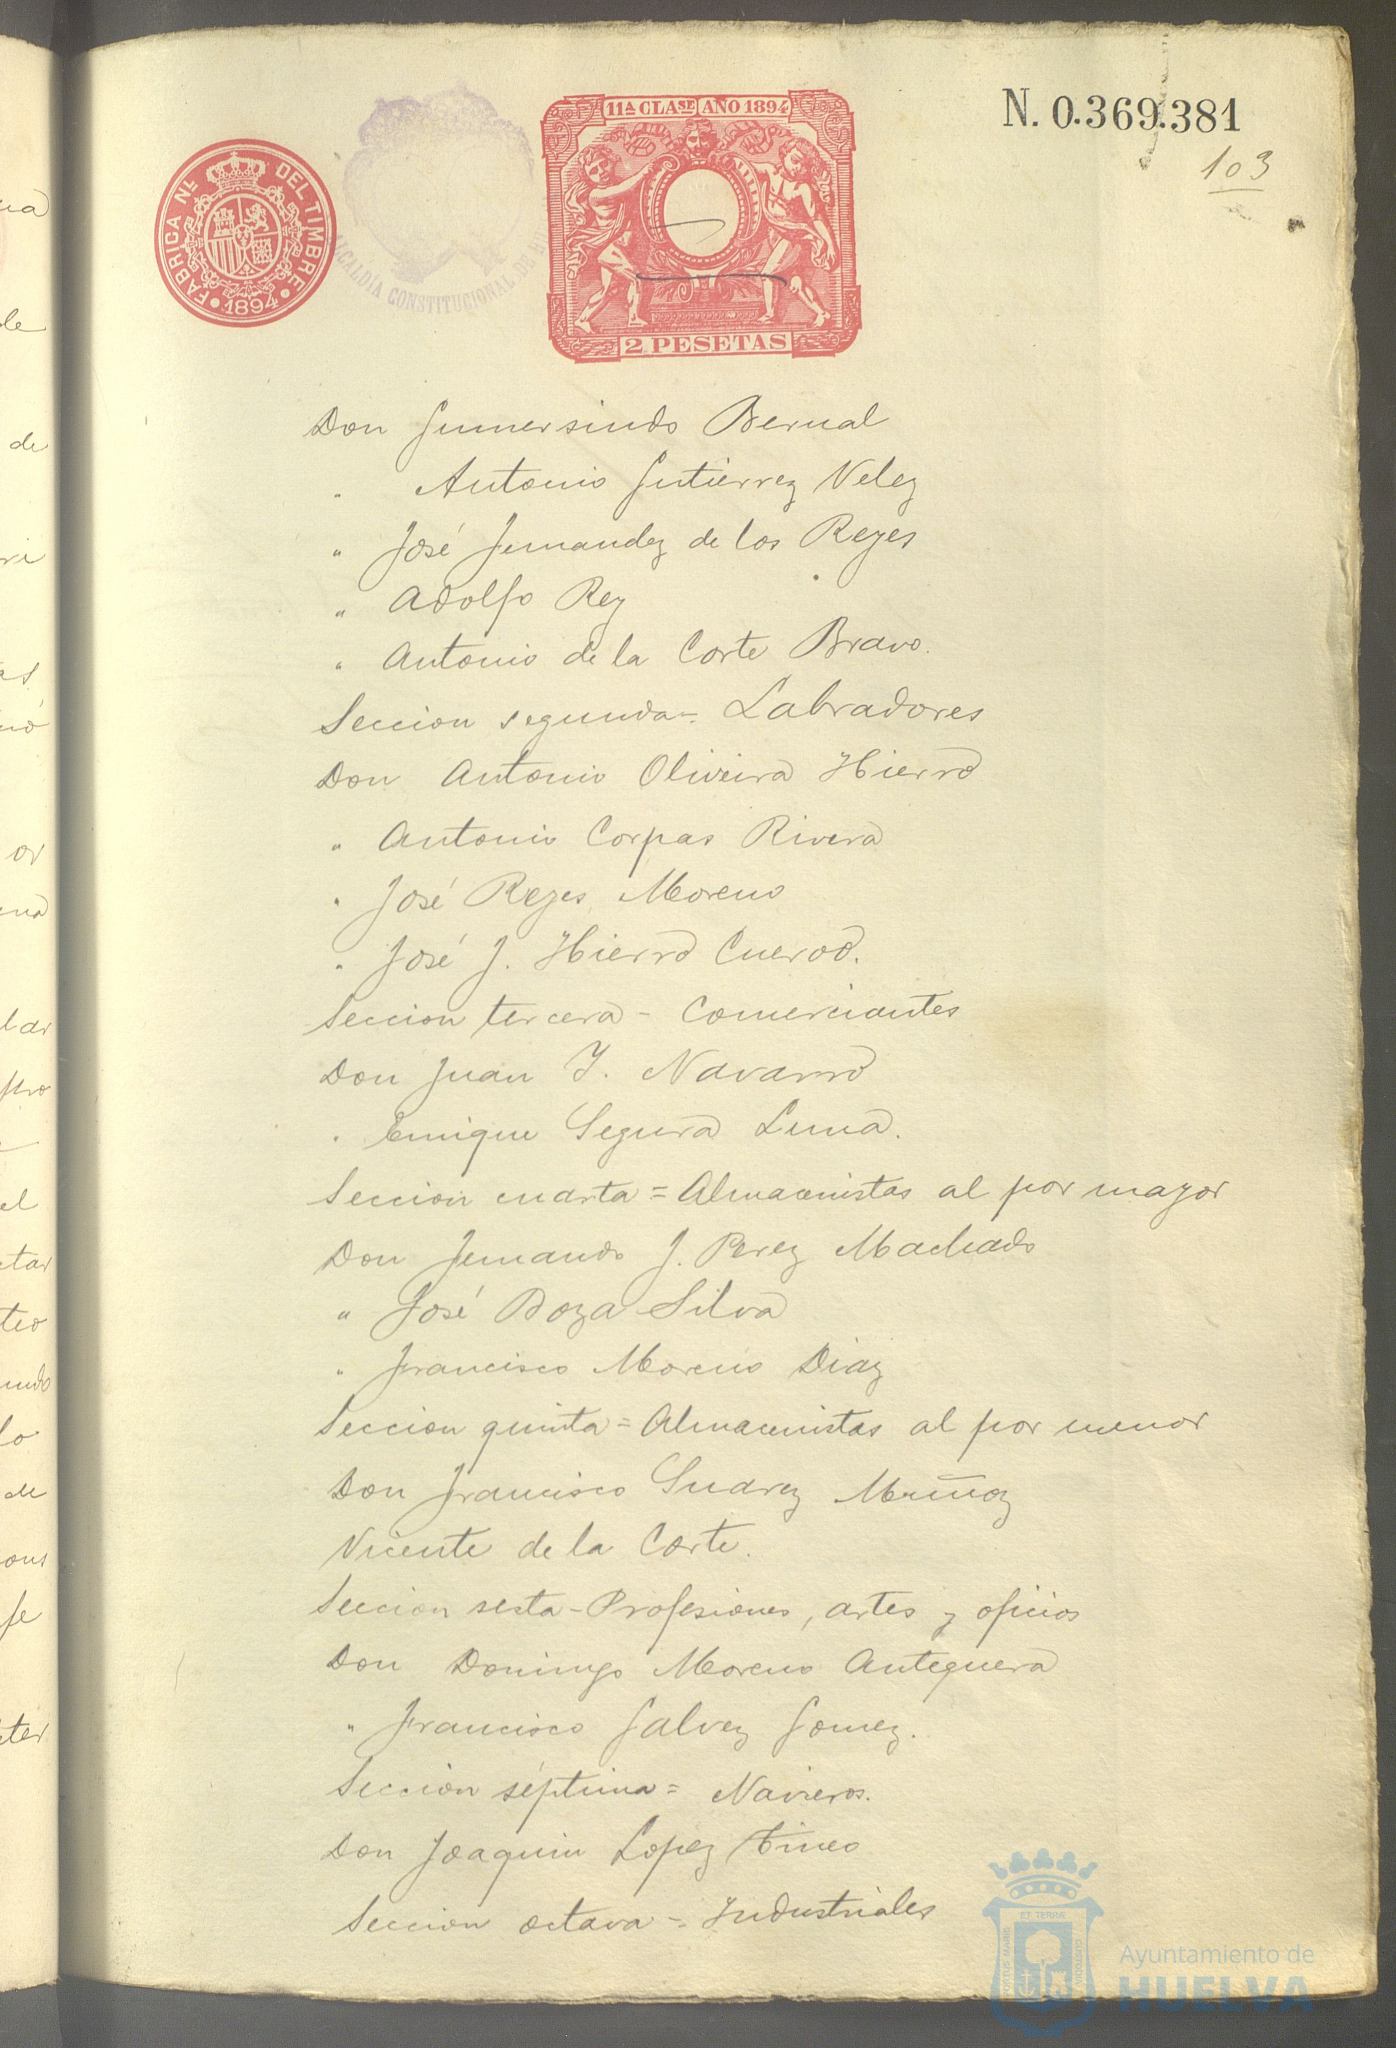 11ª CLASE AÑO 1894
N. 0.369.381
103
FABRICA NL. DEL TIMBRE
1894
ALCALDÍA CONSTITUCIONAL DE
2 PESETAS
Don Gumersindo Bernal
" Antonio Gutierrez Velez
" José Fernandez de los Reyes
" Adolfo Rey
" Antonio de la Corte Bravo.
Seccion segunda = Labradores
Don Antonio Oliveira Hierro
" Antonio Corpas Rivera
" José Reyes Moreno
" José J. Hierro
Seccion tercera - Comerciantes
Don Juan Y. Navarro
" Enrique Segura Luna.
Seccion cuarta = Almacenistas al por mayor
Don Fernando J. Perez Machado
" José Boza Silva
" Francisco Moreno Diaz
Seccion quinta = Almacenistas al por menor
Don Francisco Suarez Muñoz
Vicente de la Corte.
Seccion sesta - Profesiones, artes y oficios
Don Domingo Moreno Antequera
" Francisco Galvez Gomez.
Seccion séptima = Navieros.
Don Joaquin Lopez Tineo
Seccion octava = Industriales
Ayuntamiento de
HUELVA